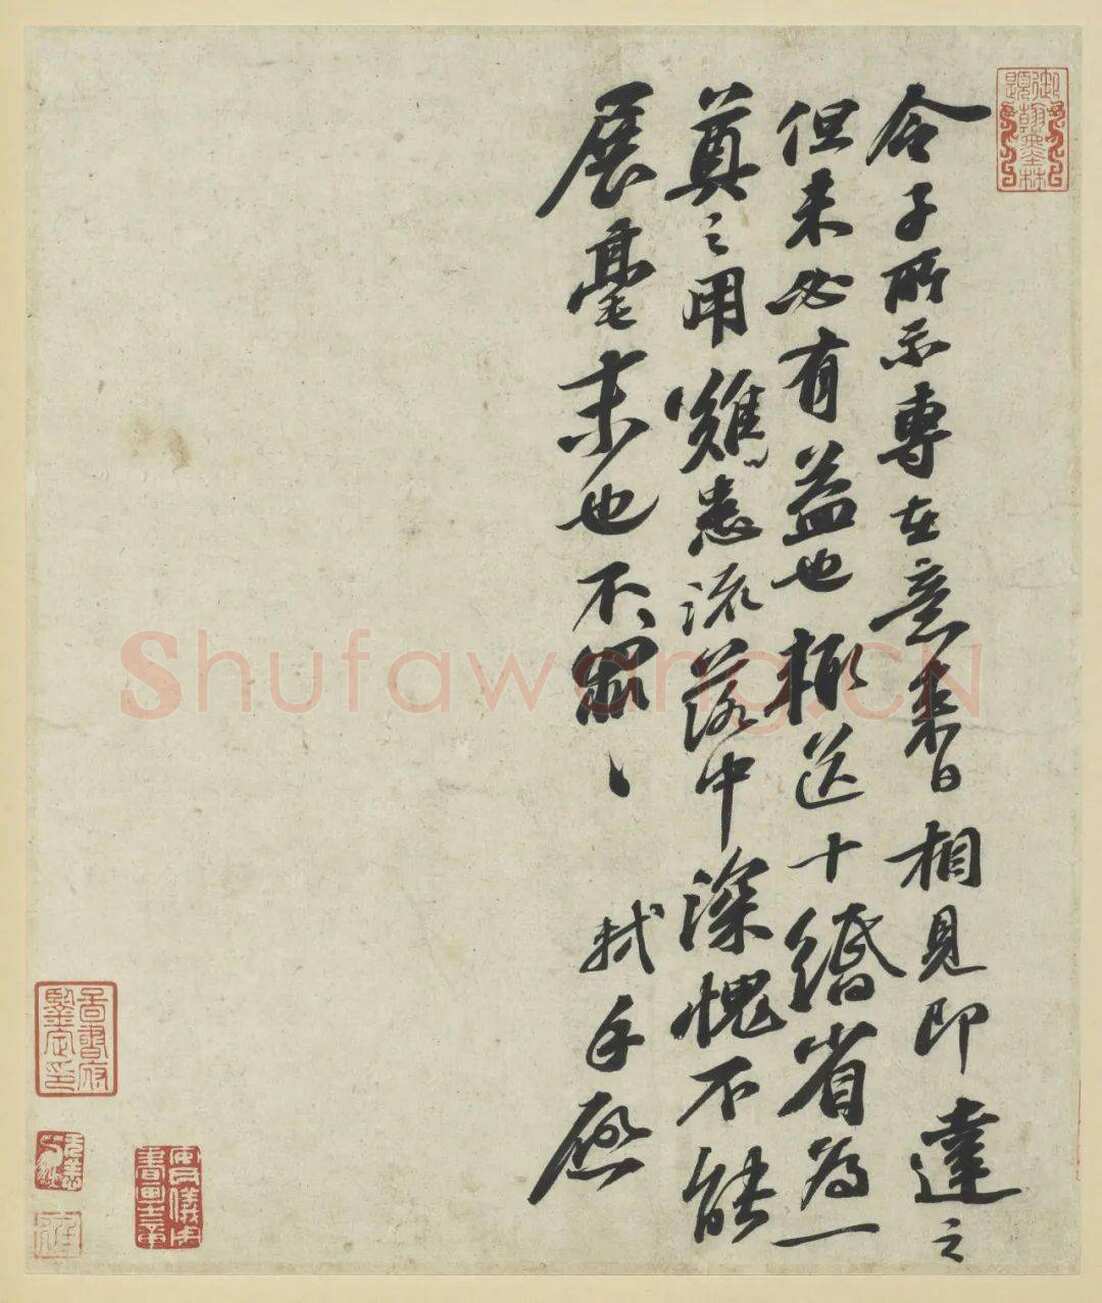 令子所示專在意來日相見即達之
但未必有益也輒送十緡省為一
奠之用難患流落中深愧不能
展毫末也不罪〻
軾手啟
Shufawang.CN